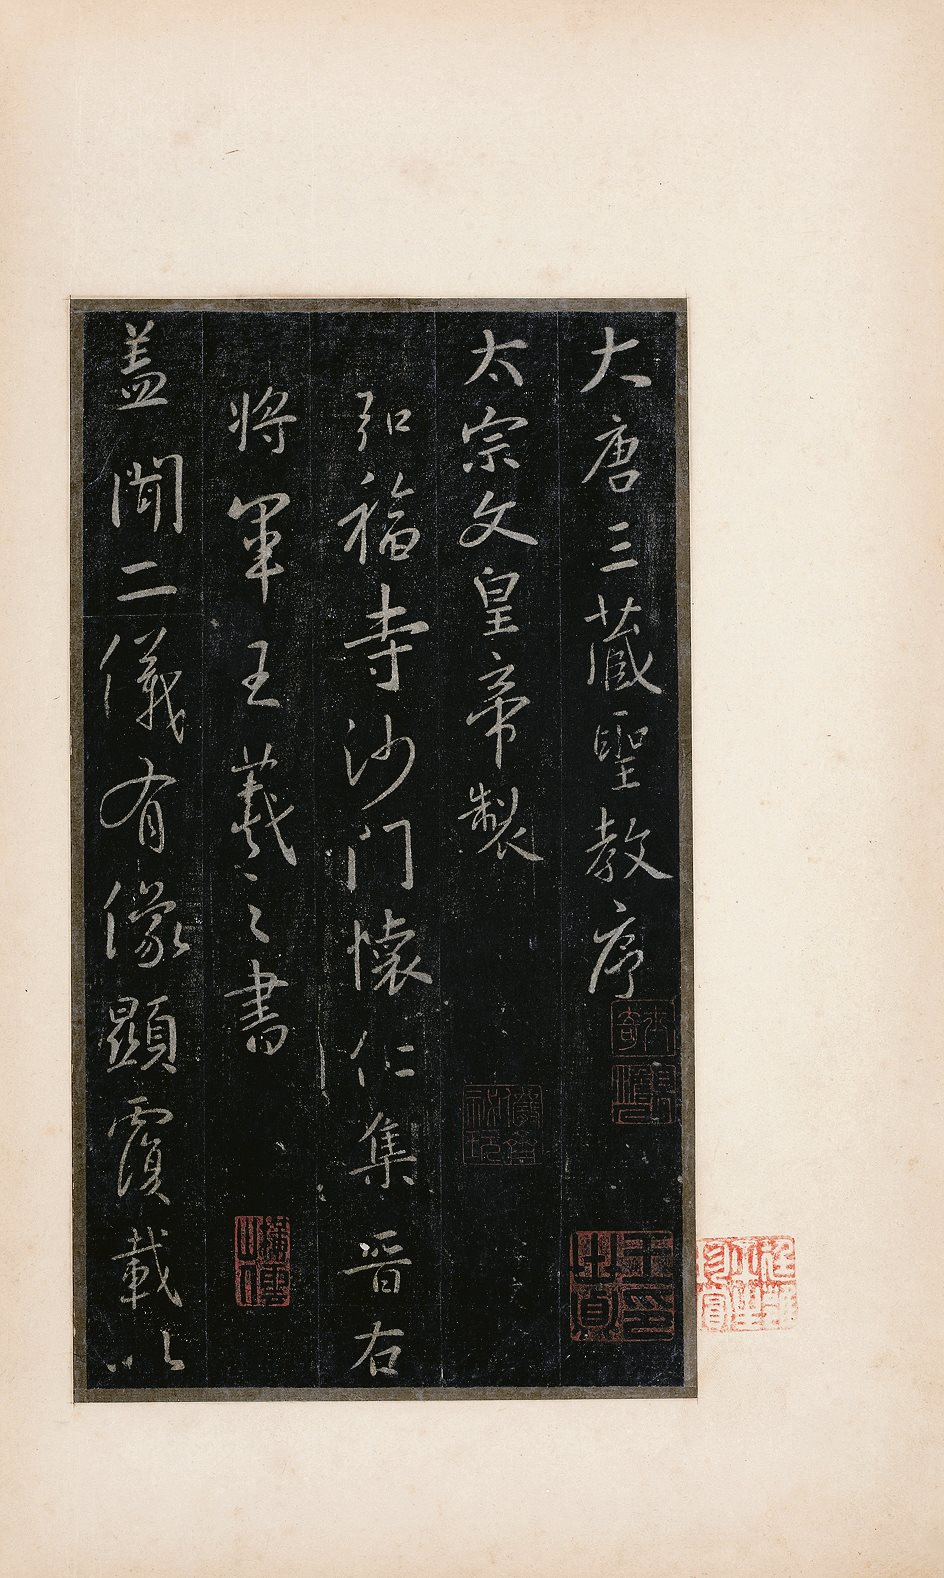 大唐三藏聖教序
太宗文皇帝製
弘福寺沙門懷仁集晉右
將軍王羲之書
蓋聞二儀有像顯覆載以